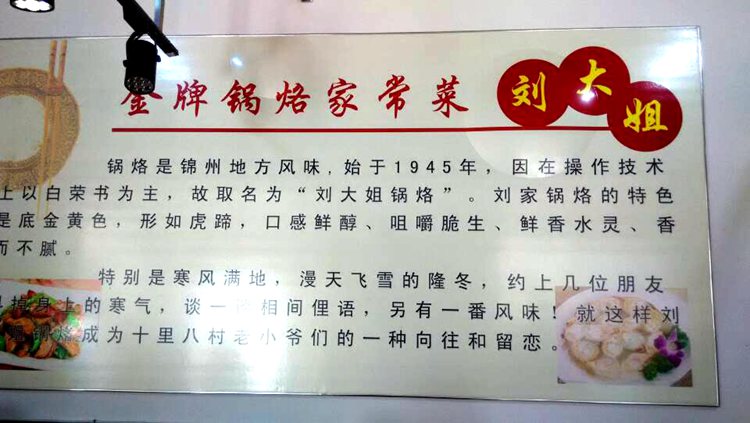 金牌锅烙家常菜 刘大姐
锅烙是锦州地方风味,始于1945年，因在操作技术
上以白荣书为主，故取名为“刘大姐锅烙”。刘家锅烙的特色
是底金黄色，形如虎蹄，口感鲜醇、咀嚼脆生、鲜香水灵、香
而不腻。
特别是寒风满地，漫天飞雪的隆冬，约上几位朋友
掉身上的寒气，谈一 相间俚语，另有一番风味！就这样刘
锅烙成为十里八村老小爷们的一种向往和留恋。